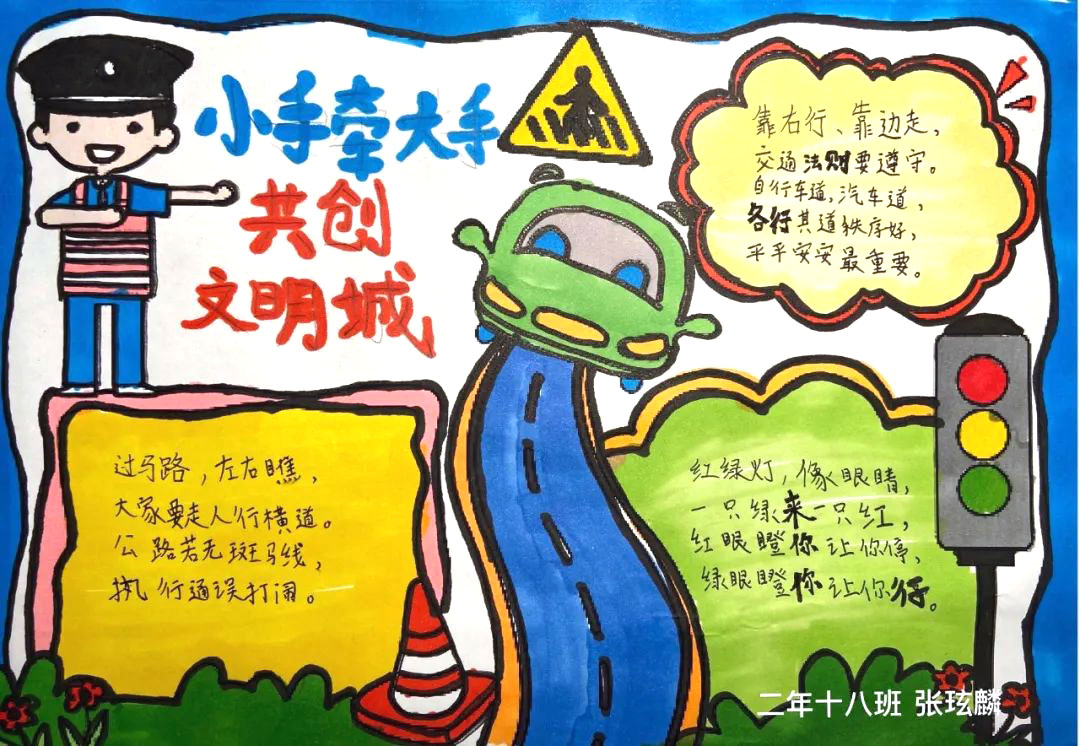 小手牵大手
共创
文明城
靠右行、靠边走，
交通法则要遵守。
自行车道，汽车道，
各行其道秩序好，
平平安安最重要。
过马路，左右瞧，
大家要走人行横道。
公路若无斑马线，
执行通误打闹。
红绿灯，像眼睛，
一只绿来一只红，
红眼瞪你让你停，
绿眼瞪你让你行。
二年十八班 张玹麟